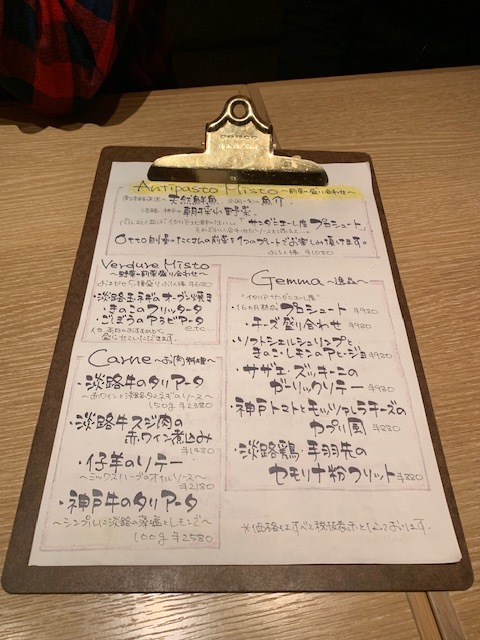 Antipasto Misto ～前菜の盛り合わせ～
天然鮮魚 魚介
朝採れ野菜
サンダニエーレ産 プロシュート
Otto自慢のたくさんの前菜を1つのプレートでお楽しみ頂けます。
Verdure Misto
～野菜の前菜盛り合わせ～
・淡路玉ネギのオーブン焼き
・きのこのフリッタータ
・ごぼうのアラビアータ
etc
Carne ～お肉料理～
・淡路牛のタリアータ
～赤ワインと淡路玉ネギのソース～
150g ¥2380
・淡路牛スジ肉の
赤ワイン煮込み
¥1480
・仔羊のソテー
～ミックスハーブのオイルソース～
¥2180
・神戸牛のタリアータ
～シンプルに淡路の藻塩とレモンで～
100g ¥2580
Gemma ～逸品～
イタリア サンダニエーレ産
・16ヵ月熟成 プロシュート ¥980
・チーズ盛り合わせ ¥980
・ソフトシェルシュリンプと
きのこ・レモンのアヒージョ
¥980
・サザエ・ズッキーニの
ガーリックソテー ¥980
・神戸トマトとモッツァレラチーズの
カプリ風 ¥880
・淡路鶏・手羽先の
セモリナ粉フリット ¥880
※価格はすべて税抜表示となっております。